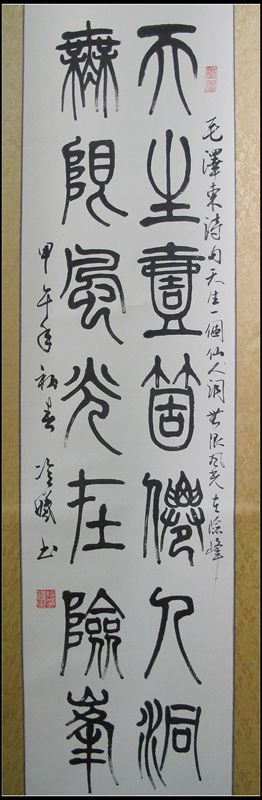 毛澤東詩句天生一個仙人洞無限風光在險峰
天生壹箇僊人洞
無限風光在險峯
甲午年初春 冷 書